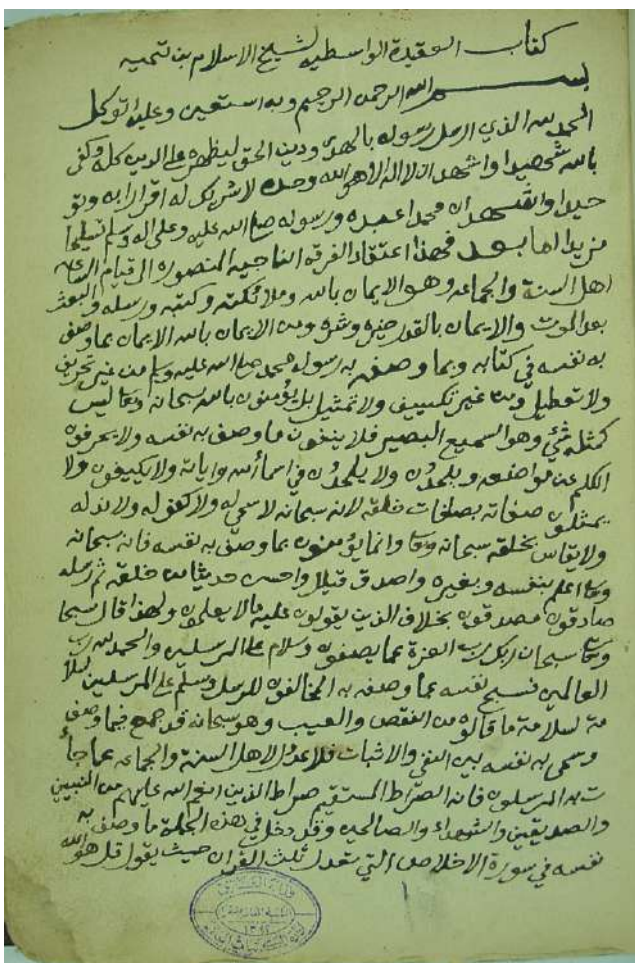 كتاب العقيدة الواسطيه لشيخ الاسلام بن تيميه
بسم الله الرحمن الرحيم وبه استعين وعليه اتوكل
الحمد لله الذي ارسل رسوله بالهدى ودين الحق ليظهره على الدين كله وكفى
بالله شهيدا واشهد ان لا اله الا هو الله وحده لا شريك له اقرارا به وتو
حيدا واشهد ان محمدا عبده ورسوله صلى الله عليه وعلى اله وسلم تسليما
مزيدا اما بعد فهذا اعتقاد الفرقه الناجيه المنصوره الى قيام الساعه
اهل السنة والجماعه وهو الايمان بالله وملائكته وكتبه ورسله والبعث
بعد الموت والايمان بالقدر خيره وشره ومن الايمان بالله الايمان بما وصف
به نفسه في كتابه وبما وصفه به رسوله محمد صلى الله عليه وسلم من غير تحريف
ولا تعطيل ومن غير تكييف ولا تمثيل بل يؤمنون بالله سبحانه وتعا ليس
كمثله شئ وهو السميع البصير فلا ينفون ما وصف به نفسه ولا يحرفون
الكلم عن مواضعه ولا يلحدون في اسماء الله واياته ولا يكيفون ولا
يمثلون صفاته بصفات خلقه لانه سبحانه لا سمي له ولا كفو له ولا ند له
ولا يقاس بخلقه سبحانه وتعا وانما يؤمنون بما وصف به نفسه فانه سبحانه
وتعا اعلم بنفسه وبغيره واصدق قيلا واحسن حديثا من خلقه ثم رسله
صادقون مصدقون بخلاف الذين يقولون عليه ما لا يعلمون ولهذا قال سبحا
وتعا سبحان ربك رب العزة عما يصفون وسلام على المرسلين والحمد لله رب
العالمين فسبح نفسه عما وصفه به المخالفون للرسل وسلم على المرسلين
لسلامة ما قالوه من النقص والعيب وهو سبحانه قد جمع فيما وصف
وسمى به نفسه بين النفي والاثبات فلا عدول لاهل السنة والجماعه عما جآ
ت به المرسلون فانه الصراط المستقيم صراط الذين انعم الله عليهم من النبيين
والصديقين والشهداء والصالحين وقد دخل في هذه الجملة ما وصف به
نفسه في سورة الاخلاص التي تعدل ثلث القران حيث يقول قل هو الله